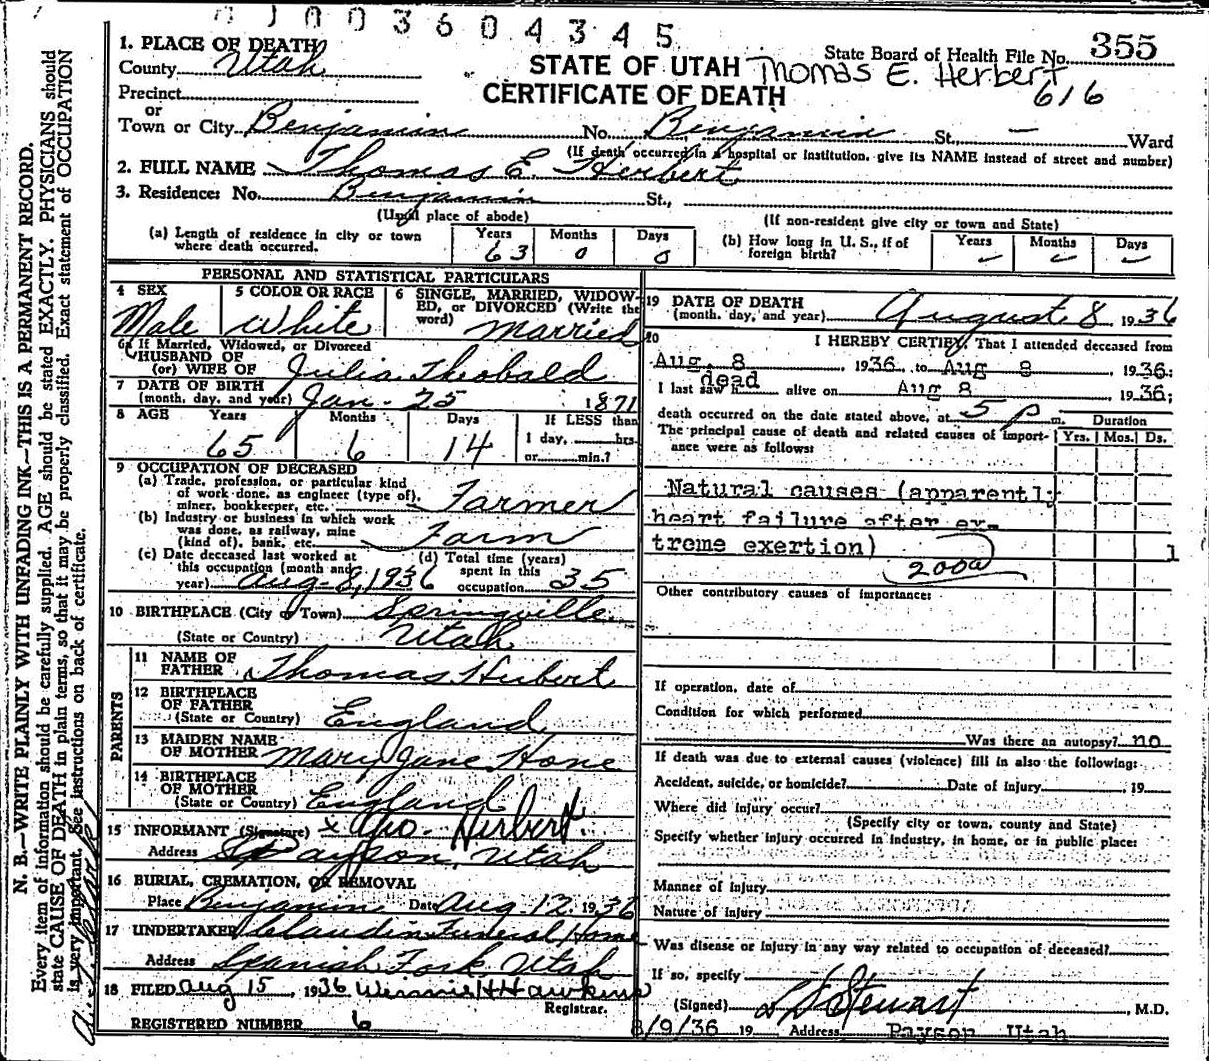 003604345
1. PLACE OF DEATH
County Utah
State Board of Health File No. 355
STATE OF UTAH
Thomas E. Herbert
616
CERTIFICATE OF DEATH
Precinct
or
Town or City Benjamin No. Benjamin St., — Ward
(If death occurred in a hospital or institution, give its NAME instead of street and number)
2. FULL NAME Thomas E. Herbert
3. Residence: No. Benjamin St.,
(Usual place of abode) (If non-resident give city or town and State)
(a) Length of residence in city or town where death occurred. Years 63 Months 0 Days 0
(b) How long in U. S., if of foreign birth? Years – Months – Days –
PERSONAL AND STATISTICAL PARTICULARS
4 SEX Male
5 COLOR OR RACE White
6 SINGLE, MARRIED, WIDOWED, or DIVORCED (Write the word) Married
6a If Married, Widowed, or Divorced
HUSBAND OF
(or) WIFE OF Julia Theobald
7 DATE OF BIRTH
(month, day, and year) Jan - 25 1871
8 AGE Years 65 Months 6 Days 14 If LESS than 1 day, hrs. or min.?
9 OCCUPATION OF DECEASED
(a) Trade, profession, or particular kind
of work done, as engineer (type of),
miner, bookkeeper, etc. Farmer
(b) Industry or business in which work
was done, as railway, mine
(kind of), bank, etc. Farm
(c) Date deceased last worked at
this occupation (month and
year) Aug-8, 1936
(d) Total time (years)
spent in this
occupation 35
10 BIRTHPLACE (City or Town) Springville
(State or Country) Utah
PARENTS
11 NAME OF
FATHER Thomas Herbert
12 BIRTHPLACE
OF FATHER
(State or Country) England
13 MAIDEN NAME
OF MOTHER Mary Jane Hone
14 BIRTHPLACE
OF MOTHER
(State or Country) England
15 INFORMANT (Signature) x Geo. Herbert.
Address Payson, Utah
16 BURIAL, CREMATION, OR REMOVAL
Place Benjamin Date Aug. 12. 1936
17 UNDERTAKER Claudin Funeral Home
Address Spanish Fork, Utah
18 FILED Aug 15, 1936 Winnie H Hawkins
Registrar.
REGISTERED NUMBER 6
19 DATE OF DEATH
(month, day, and year) August 8 1936
20 I HEREBY CERTIFY, That I attended deceased from
Aug. 8, 1936, to Aug 8, 1936;
dead
I last saw h alive on Aug 8, 1936;
death occurred on the date stated above, at 5 p m.
The principal cause of death and related causes of importance were as follows:
Duration
Yrs. Mos. Ds.
Natural causes (apparently
heart failure after ex-
treme exertion)
200a
1
Other contributory causes of importance:
If operation, date of
Condition for which performed
Was there an autopsy? no
If death was due to external causes (violence) fill in also the following:
Accident, suicide, or homicide? Date of Injury 19
Where did injury occur?
(Specify city or town, county and State)
Specify whether injury occurred in industry, in home, or in public place:
Manner of Injury
Nature of Injury
Was disease or injury in any way related to occupation of deceased?
If so, specify
(Signed) L D Stewart, M.D.
8/9/36 19 Address Payson Utah
N. B.—WRITE PLAINLY WITH UNFADING INK—THIS IS A PERMANENT RECORD.
Every item of information should be carefully supplied. AGE should be stated EXACTLY. PHYSICIANS should
state CAUSE OF DEATH in plain terms, so that it may be properly classified. Exact statement of OCCUPATION
is very important. See instructions on back of certificate.